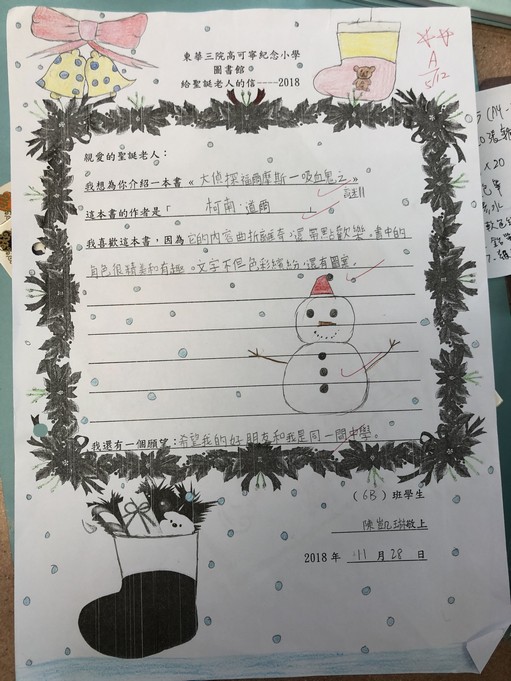 東華三院高可寧紀念小學
圖書館
給聖誕老人的信----2018
A
5/12
親愛的聖誕老人：
我想為你介紹一本書《大偵探福爾摩斯—吸血鬼之
》
這本書的作者是「柯南·道爾」
我喜歡這本書，因為它的內容曲折離奇，還帶點歡樂。書中的
角色很精美和有趣。文字不但色彩繽紛，還有圖案。
我還有一個願望：希望我的好朋友和我是同一間中學。
（6B）班學生
陳凱琳敬上
2018 年 11 月 28 日